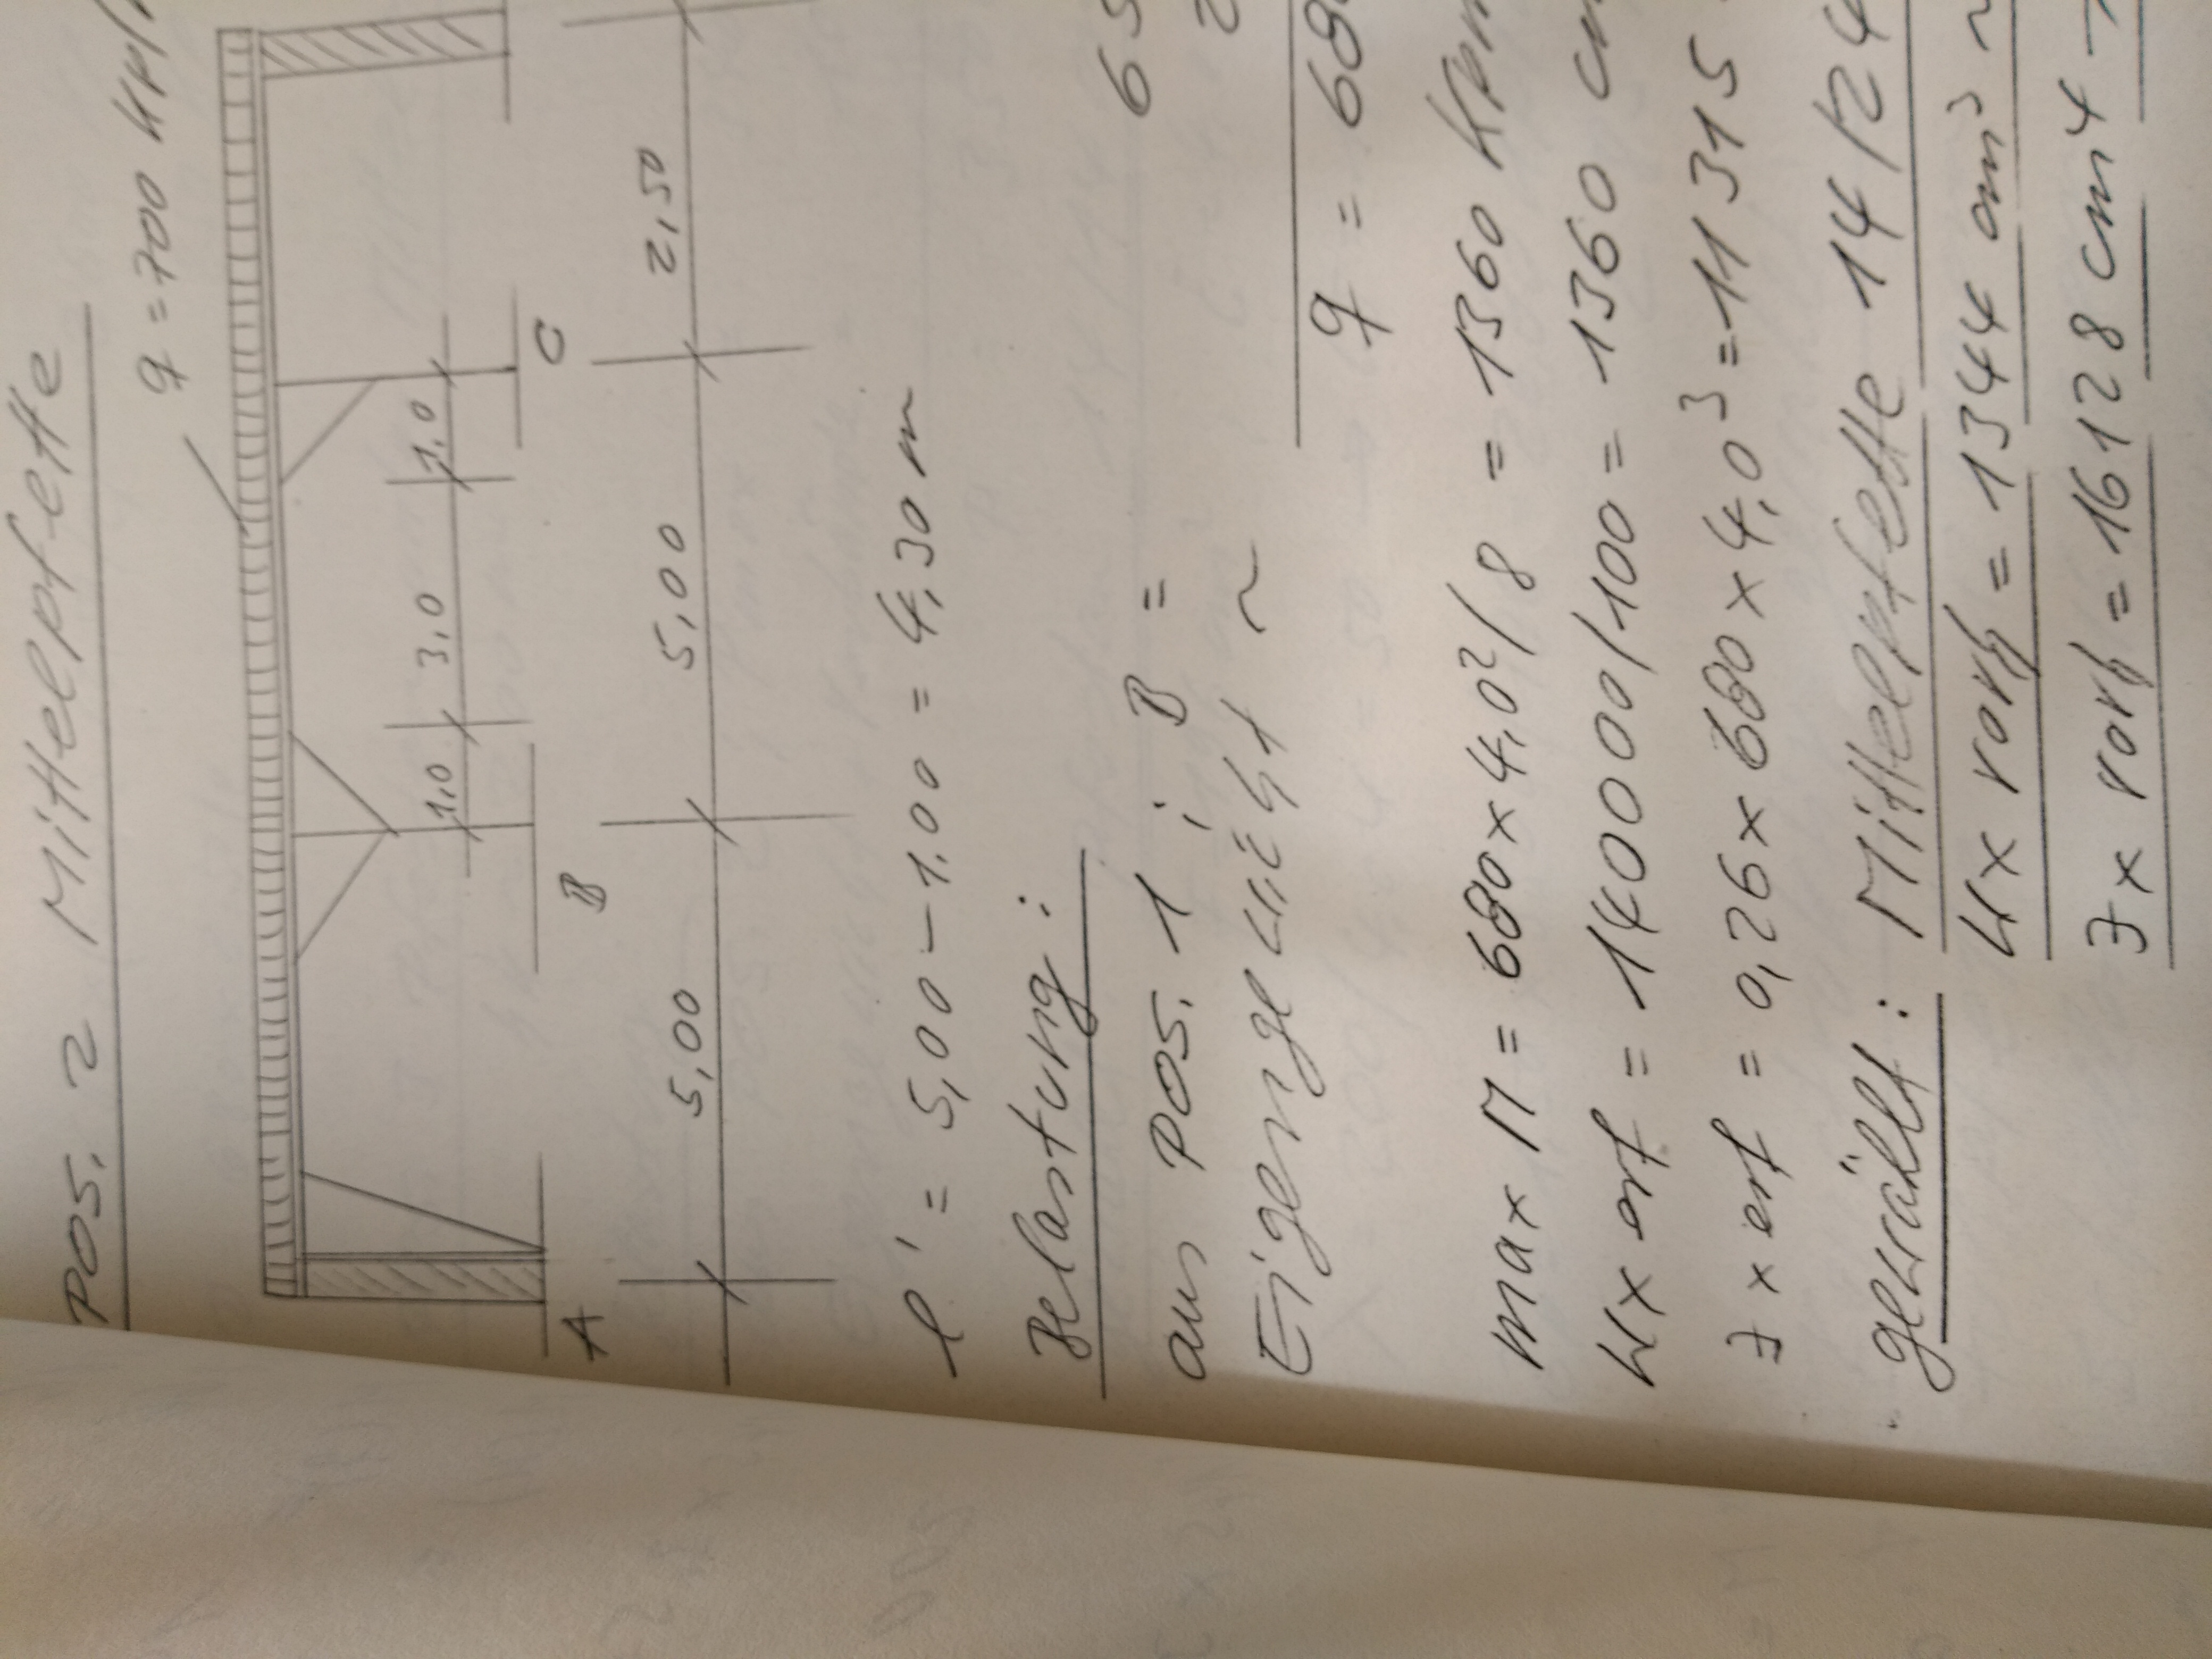 Pos. 2 Mittelpfette
q = 700 kp/
1,0 3,0 1,0
A B C
5,00 5,00 2,50
l' = 5,00 - 1.00 = 4,30 m
Belastung:
aus Pos. 1 : B =
Eigengewicht ~
q = 68
max M = 680 x 4,0²/8 = 1360 kpm
Wx erf = 14 0000/100 = 1360 c
Jx erf = 0,26 x 680 x 4,0³ = 11315
gewählt: Mittelpfette 14/24
Wx vorh = 1344 cm³ ~
Jx vorh = 16128 cm4